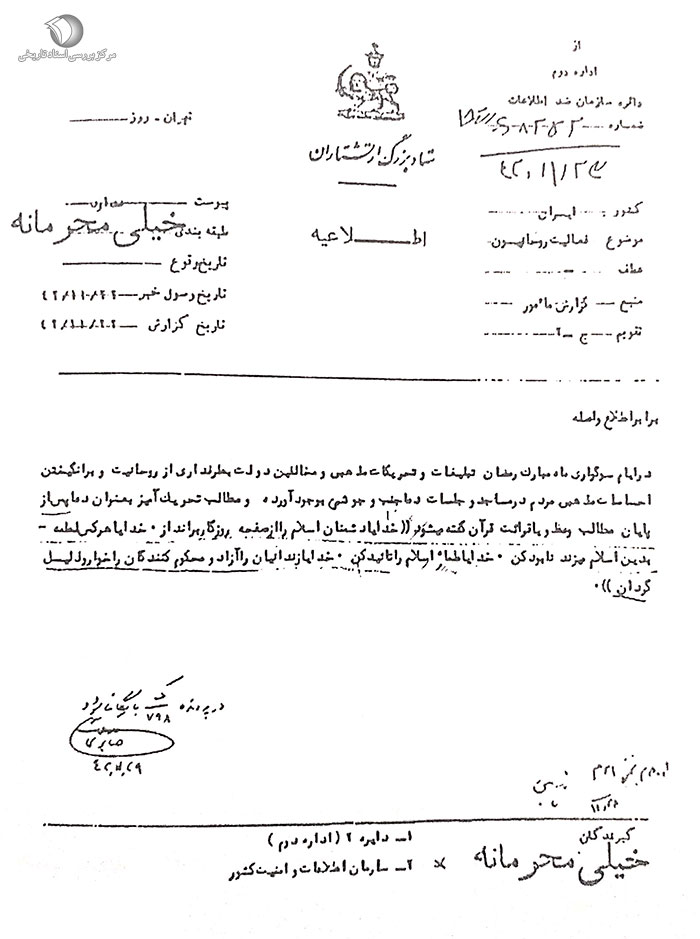 مرکز بررسی اسناد تاریخی
از
اداره دوم
دائره سازمان ضد اطلاعات
شماره
تهران - روز
ستاد بزرگ ارتشتاران
پیوست
کشور : ایران
خیلی محرمانه
طبقه بندی
اطلاعیه
موضوع فعالیت روحانیون
تاریخ وقوع
عطف
تاریخ وصول خبر ۴۲/۱۱/۲۲
منبع گزارش مامور
تاریخ گزارش ۴۲/۱۱/۲۲
تقویم ج - ۲
برابر اطلاع واصله
در ایام سوگواری ماه مبارک رمضان تبلیغات و تحریکات مذهبی و مخالفین دولت بطرفداری از روحانیت و برانگیختن
احساسات مذهبی مردم در مساجد و جلسات دعا جنب و جوشی بوجود آورده و مطالب تحریک آمیز بعنوان دعا پس از
پایان مطالب وعظ و یا قرائت قرآن گفته میشود ((خدایا دشمنان اسلام را از صفحه روزگار برانداز . خدایا هرکس لطمه -
بدین اسلام میزند نابود کن . خدایا علماء اسلام را تائید کن . خدایا زندانیان را آزاد و محکوم کنندگان را خوار و ذلیل
گردان )).
در پرونده ۷۹۸ بایگانی شود
گیرندگان
۱- دایره ۲ (اداره دوم)
خیلی محرمانه × ۲- سازمان اطلاعات و امنیت کشور